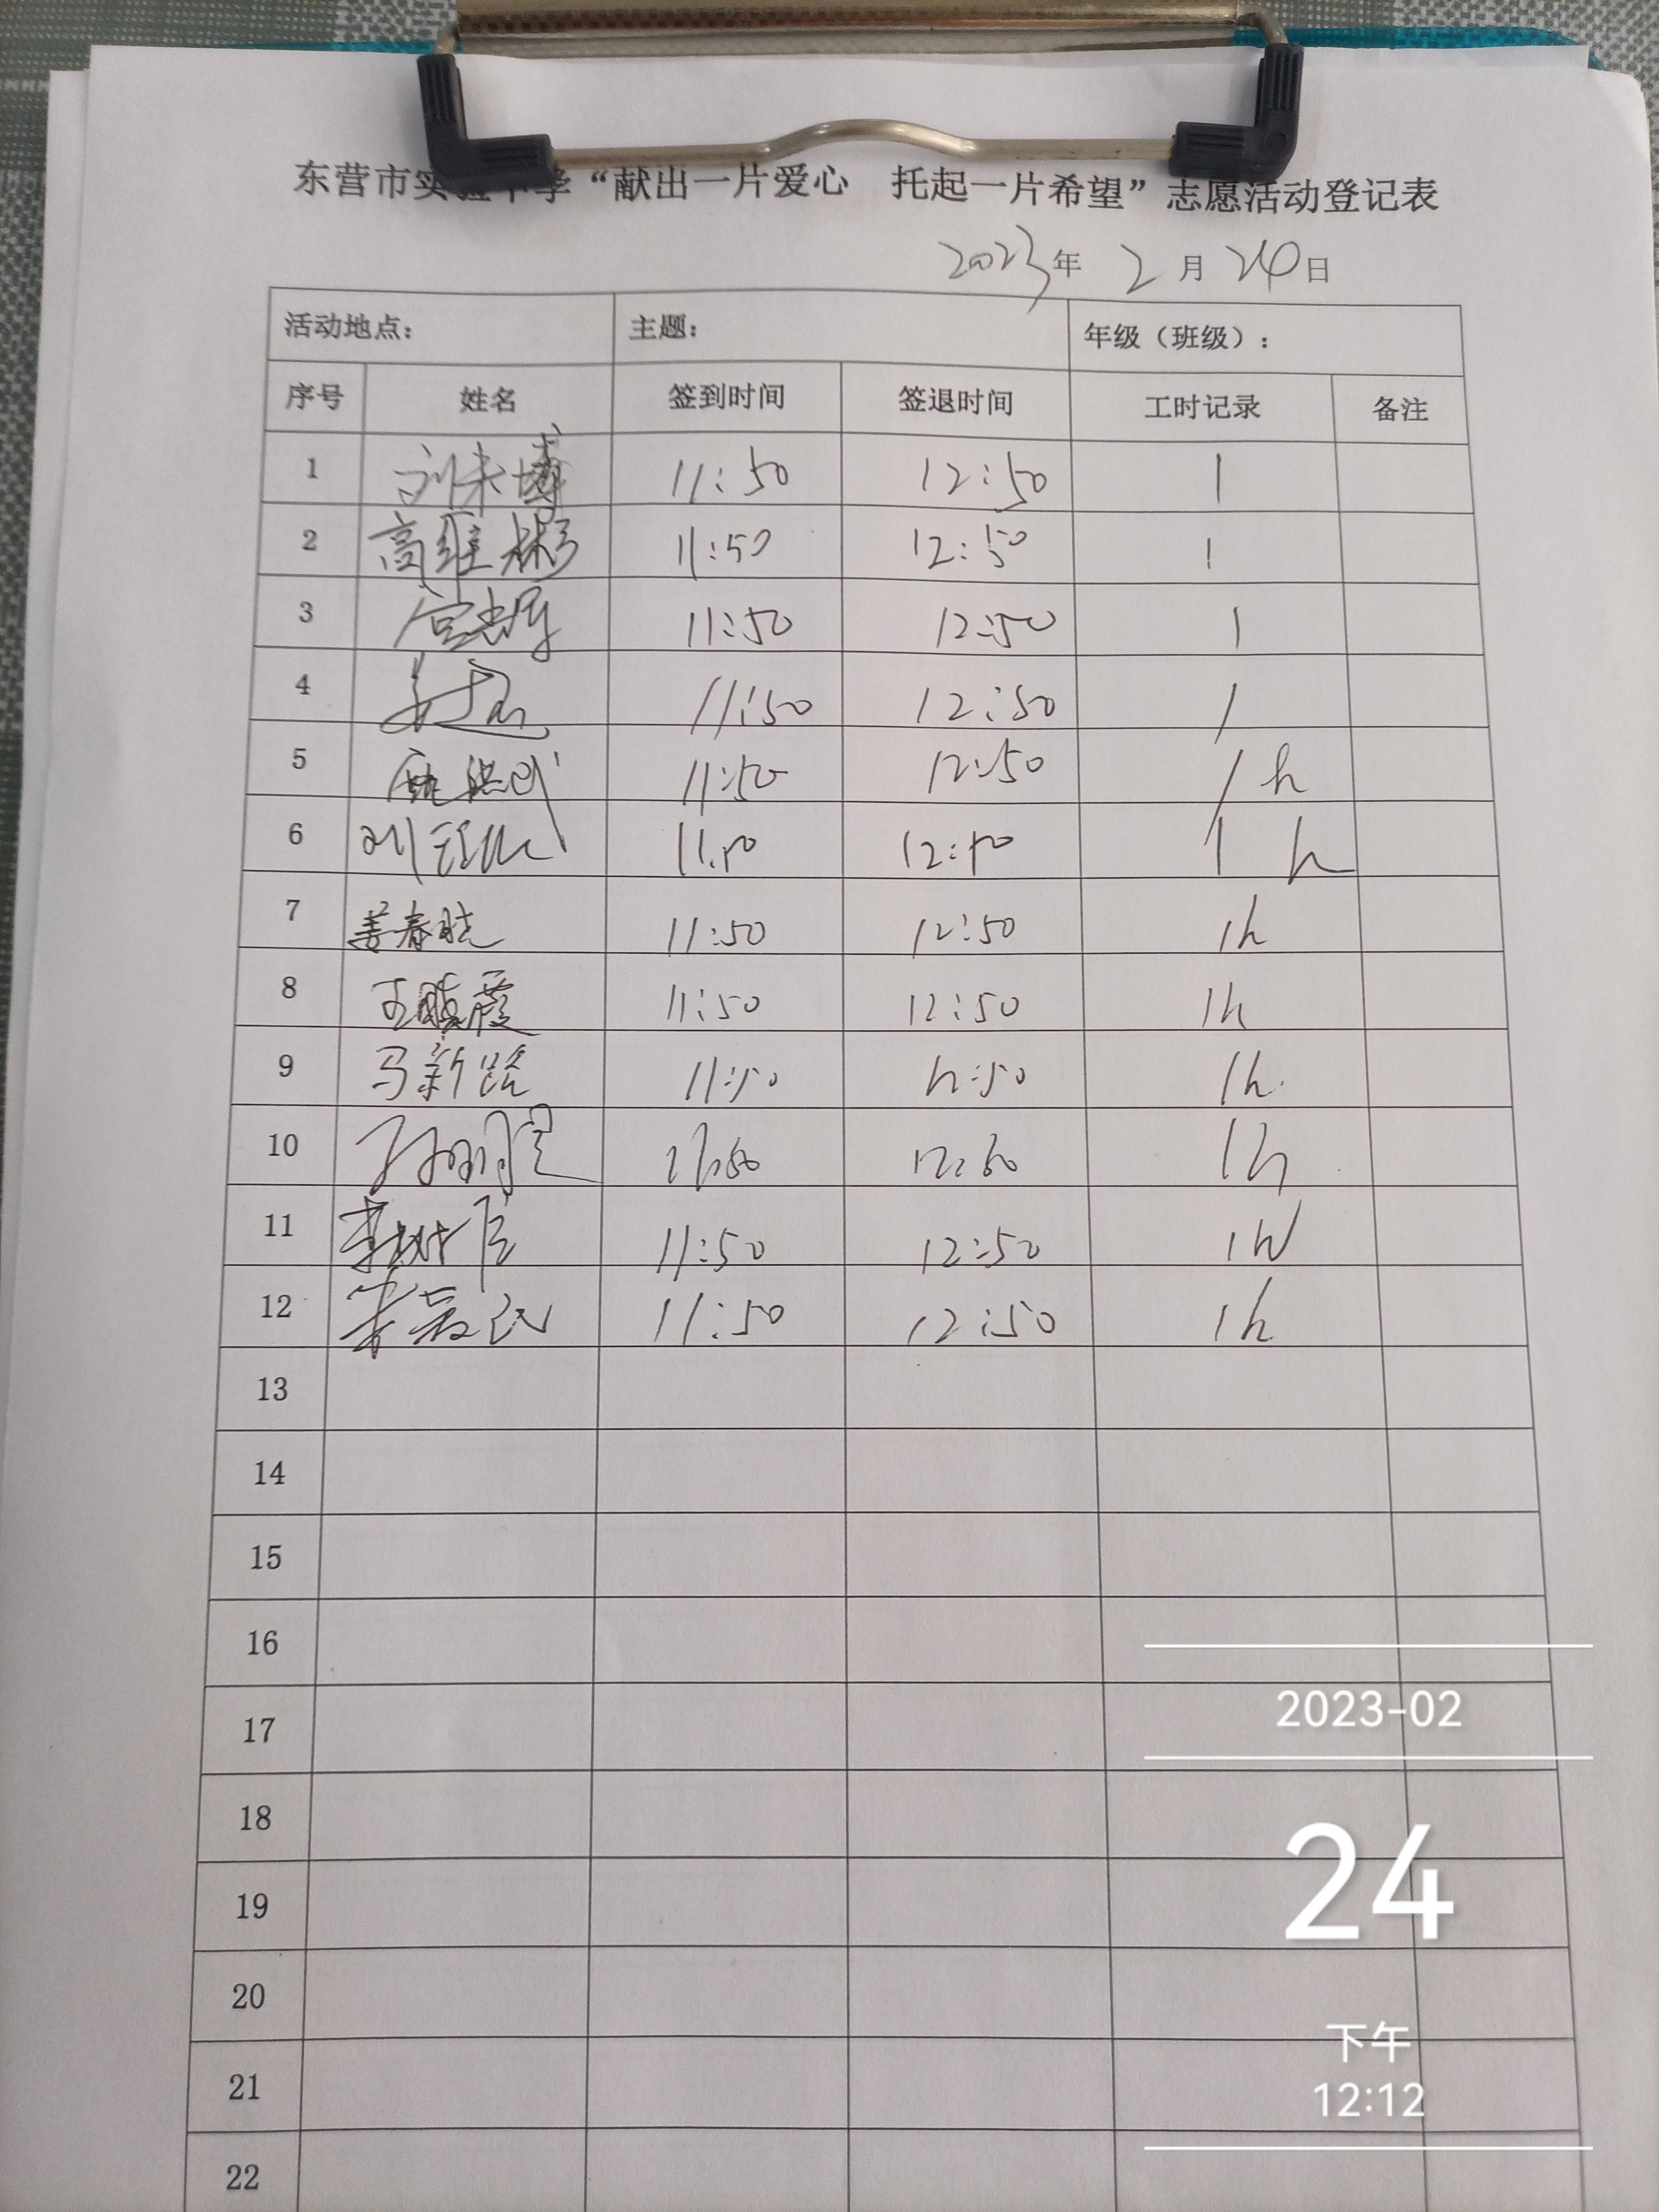 东营市实验中学“献出一片爱心 托起一片希望”志愿活动登记表
2023年 2月24日
活动地点： 主题： 年级（班级）：
序号 姓名 签到时间 签退时间 工时记录 备注
1 11:50 12:50 1
2 高维彬 11:50 12:50 1
3 11:50 12:50 1
4 11:50 12:50 1
5 11:50 12:50 1h
6 11:50 12:50 1h
7 姜春晓 11:50 12:50 1h
8 王晓霞 11:50 12:50 1h
9 马新路 11:50 12:50 1h
10 12:50 1h
11 李树 11:50 12:50 1h
12 李 11:50 12:50 1h
13
14
15
16
17
18
19
20
21
22
2023-02
24
下午
12:12